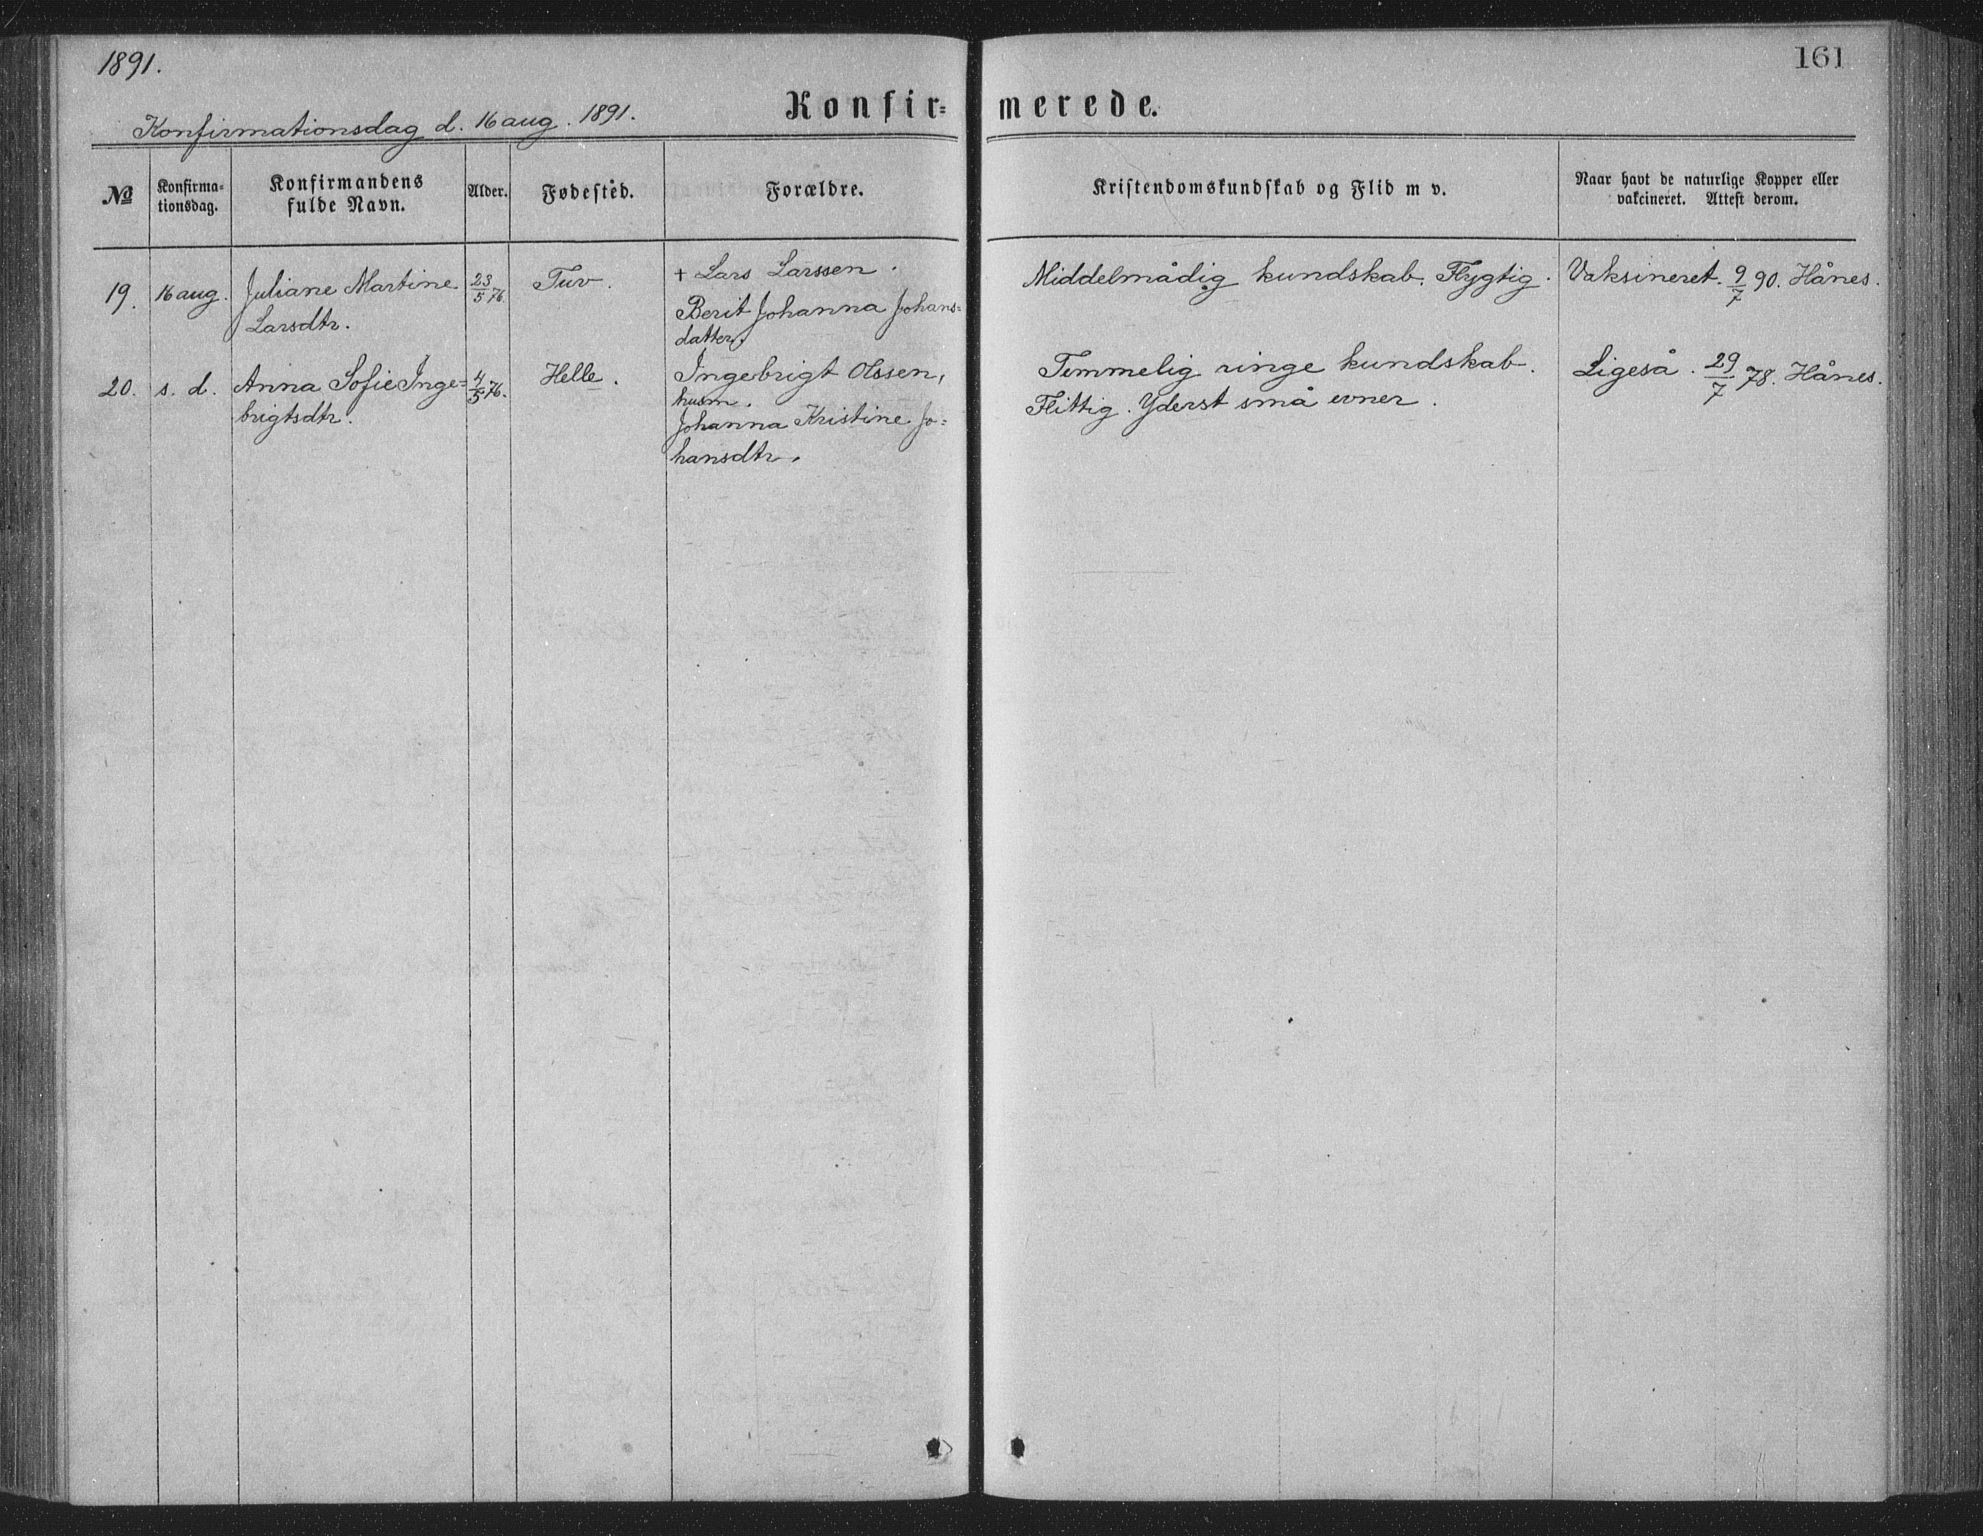 1891.
161
Konfir=merede.
Konfirmationsdag d. 16 aug. 1891.
No
Konfirma=
tionsdag.
Konfirmandens
fulde Navn.
Alder.
Fødested.
Forældre.
Kristendomskundskab og Flid m v.
Naar havt de naturlige Kopper eller
vakcineret. Attest derom.
19. 16 aug. Juliane Martine 23/5 76. Tuv. + Lars Larssen. Middelmådig kundskab. Flygtig. Vaksineret. 9/7 90. Hånes.
Larsdtr. Berit Johanna Johans=
datter.
20. s. d. Anna Sofie Inge= 4/5 76. Helle. Ingebrigt Olssen, Temmelig ringe kundskab. Ligeså. 29/7 78. Hånes.
brigtsdtr. husm. Flittig. Yderst små evner.
Johanna Kristine Jo=
hansdtr.